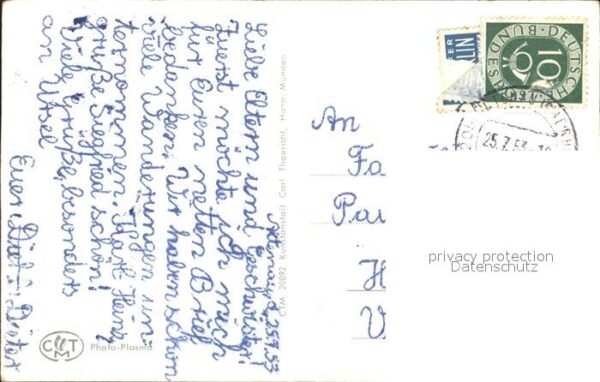 25.7.53
Liebe Eltern und Geschwister!
Zuerst möchte ich mich
für Euren netten Brief
bedanken. Wir haben schon
viele Wanderungen un-
ternommen. Karl Heinz
grüße Siegfred schön!
Viele Grüße, besonders
an Ursel
Euer Dieter
CMT
Photo-Plasma
CTM 20092 Kunstanstalt Carl Thoericht, Hann. Münden
10
DEUTSCHE BUNDESPOST
25.7.53
An
Fa
H
V
privacy protection
Datenschutz